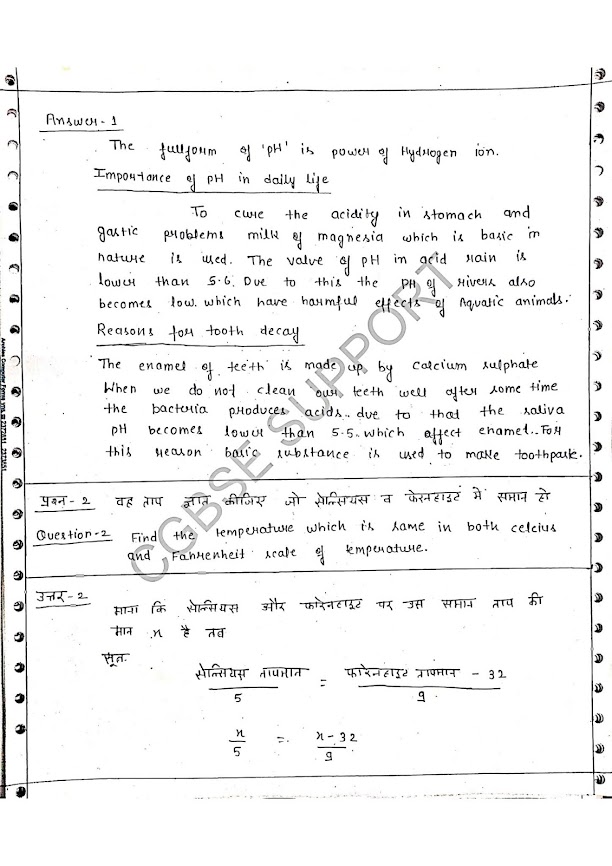 Answer-1
The fullform of 'pH' is power of Hydrogen ion.
Importance of pH in daily life
To cure the acidity in stomach and
gastic problems milk of magnesia which is basic in
nature is used. The value of pH in acid rain is
lower than 5.6. Due to this the PH of rivers also
becomes low. which have harmful effects of Aquatic animals.
Reasons for tooth decay
The enamel of teeth is made up by calcium sulphate
When we do not clean our teeth well after some time
the bacteria produces acids.. due to that the saliva
pH becomes lower than 5.5. which affect enamel.. For
this reason basic substance is used to make toothpask.
प्रश्न-2 वह ताप ज्ञात कीजिए जो सेल्सियस व फेरनहाइट में समान हो
Question-2 Find the temperature which is same in both celcius
and Fahrenheit scale of temperature.
उत्तर-2 माना कि सेल्सियस और फारेनहाइट पर उस समान ताप की
मान x है तब
सूत्र
सेल्सियस तापमान / 5 = फारेनहाइट तापमान - 32 / 9
x / 5 = x - 32 / 9
CGBSE SUPPORT